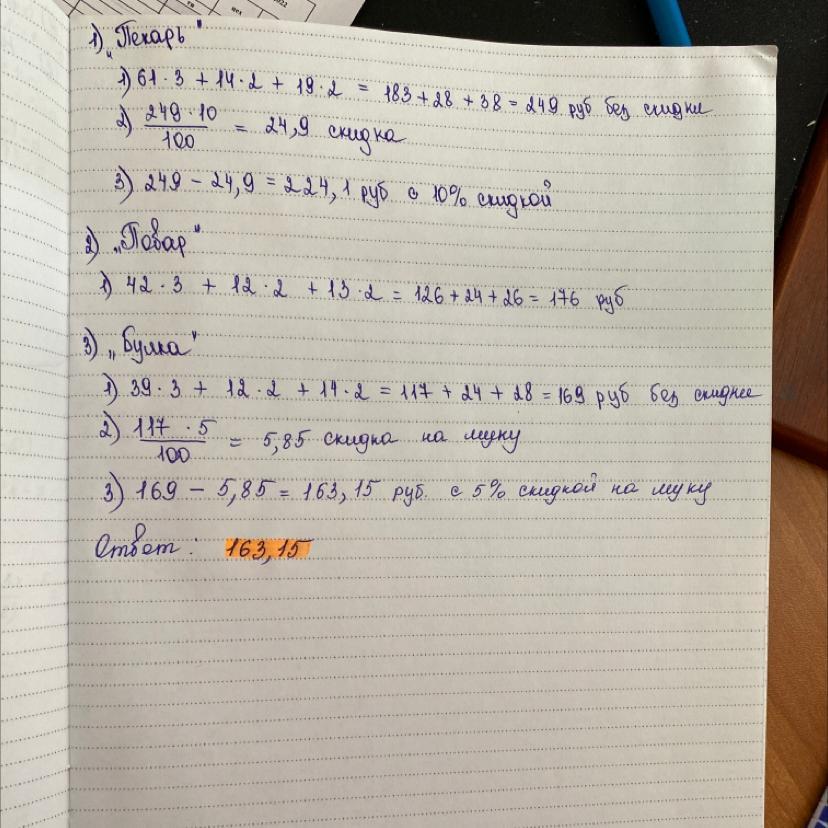 1) „Пекарь"
1) 61·3 + 14·2 + 19·2 = 183 + 28 + 38 = 249 руб без скидки
2) 249·10/100 = 24,9 скидка
3) 249 – 24,9 = 224,1 руб с 10% скидкой
2) „Повар"
1) 42·3 + 12·2 + 13·2 = 126 + 24 + 26 = 176 руб
3) „Булка"
1) 39·3 + 12·2 + 14·2 = 117 + 24 + 28 = 169 руб без скидки
2) 117·5/100 = 5,85 скидка на муку
3) 169 – 5,85 = 163,15 руб. с 5% скидкой на муку
Ответ: 163,15